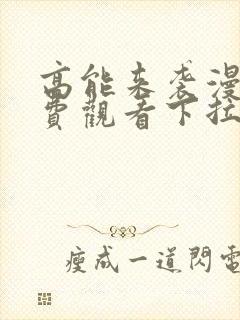 高能来袭漫
費觀看下拉
瘦成一道閃電